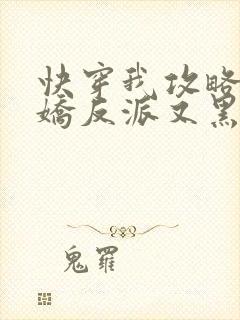 快穿我攻略
娇反派又黑
鬼罗